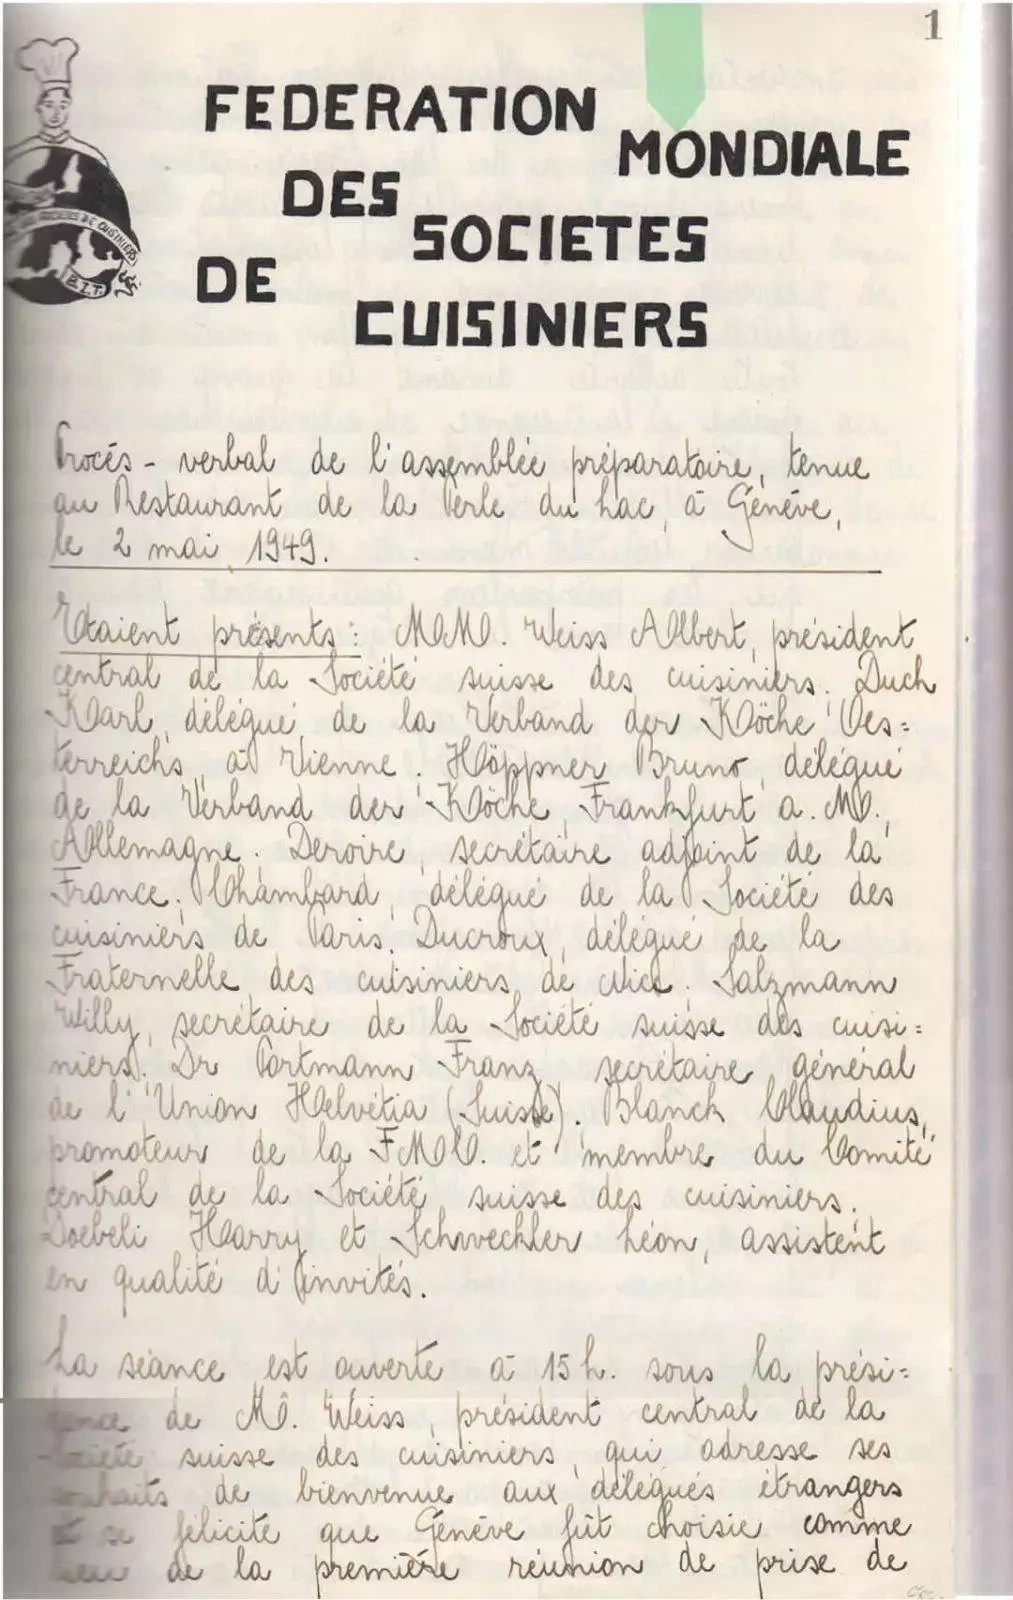 1
FEDERATION
MONDIALE
DES
SOCIETES
DE
CUISINIERS
DE CUISINIERS
B.I.T.
Procés - verbal de l'assemblée préparatoire, tenue
au Restaurant de la Perle du Lac, à Genéve,
le 2 mai 1949.
Etaient présents: MM. Weiss Albert, président
central de la Société suisse des cuisiniers. Duch
Karl, délégué de la Verband der Köche Oes=
terreichs, à Vienne. Höppner Bruno, délégué
de la Verband der Köche, Frankfurt a. M.,
Allemagne. Deroire, secrétaire adjoint de la
France. Chambard, délégué de la Société des
cuisiniers de Paris. Ducroux, délégué de la
Fraternelle des cuisiniers de Nice. Salzmann
Willy, secrétaire de la Société suisse des cuisi=
niers. Dr Portmann Franz secrétaire général
de l'Union Helvétia (Suisse). Blanck Claudius,
promoteur de la FMC. et membre du Comité
central de la Société suisse des cuisiniers.
Doebeli Harry et Schweckler Léon, assistent
en qualité d'invités.
La séance est ouverte à 15 h. sous la prési=
dence de M. Weiss, président central de la
Société suisse des cuisiniers, qui adresse ses
souhaits de bienvenue aux délégués étrangers
et se félicite que Genéve fût choisie comme
lieu de la première réunion de prise de